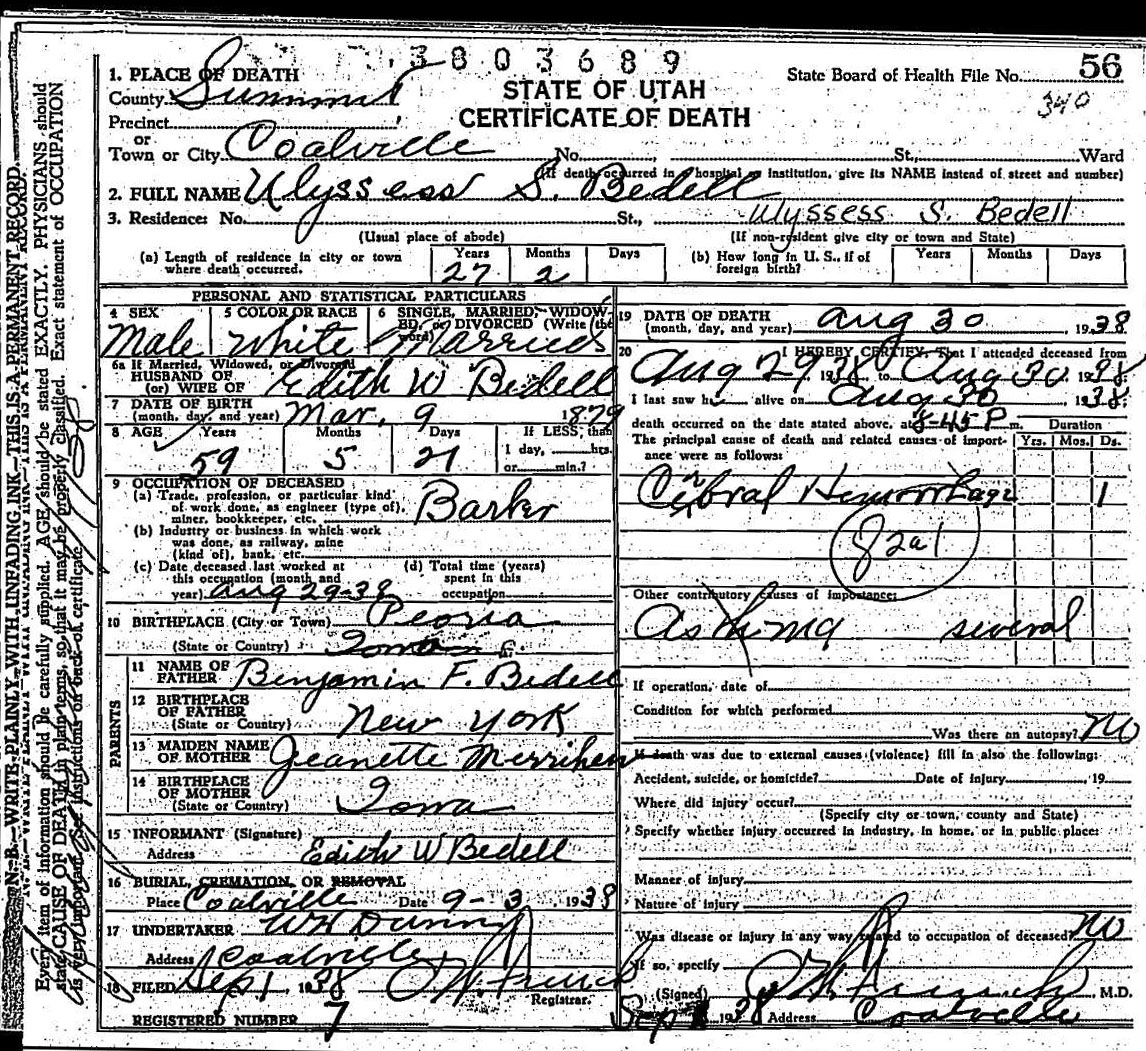 3803689
1. PLACE OF DEATH
County Summit
STATE OF UTAH
CERTIFICATE OF DEATH
State Board of Health File No. 56
340
Precinct
or
Town or City Coalville No. St., Ward
(If death occurred in a hospital or institution, give its NAME instead of street and number)
2. FULL NAME Ulyssess S. Bedell
3. Residence: No. St., Ulyssess S. Bedell
(Usual place of abode) (If non-resident give city or town and State)
(a) Length of residence in city or town where death occurred. Years 27 Months 2 Days
(b) How long in U. S., if of foreign birth? Years Months Days
PERSONAL AND STATISTICAL PARTICULARS
4 SEX Male
5 COLOR OR RACE White
6 SINGLE, MARRIED, WIDOWED, or DIVORCED (Write the word) Married
6a If Married, Widowed, or Divorced
HUSBAND OF
(or) WIFE OF Edith W Bedell
7 DATE OF BIRTH
(month, day, and year) Mar. 9 1879
8 AGE Years 59 Months 5 Days 21
If LESS than
1 day, hrs.
or min.?
9 OCCUPATION OF DECEASED
(a) Trade, profession, or particular kind
of work done, as engineer (type of),
miner, bookkeeper, etc. Barber
(b) Industry or business in which work
was done, as railway, mine
(kind of), bank, etc.
(c) Date deceased last worked at
this occupation (month and
year) Aug 29-38
(d) Total time (years)
spent in this
occupation
10 BIRTHPLACE (City or Town) Peoria
(State or Country) Iowa
PARENTS
11 NAME OF
FATHER Benjamin F. Bedell
12 BIRTHPLACE
OF FATHER
(State or Country) New York
13 MAIDEN NAME
OF MOTHER Jeanette
14 BIRTHPLACE
OF MOTHER
(State or Country) Iowa
15 INFORMANT (Signature)
Address Edith W Bedell
16 BURIAL, CREMATION, OR REMOVAL
Place Coalville Date 9-3, 1938
17 UNDERTAKER WH
Address Coalville
18 FILED Sep 1 1938 French
Registrar.
REGISTERED NUMBER 7
19 DATE OF DEATH
(month, day, and year) Aug 30 1938
20 I HEREBY CERTIFY, That I attended deceased from
Aug 29 1938 to Aug 30 1938
I last saw h alive on Aug 30 1938
death occurred on the date stated above, at 8-45 P m.
The principal cause of death and related causes of importance were as follows:
Duration
Yrs. Mos. Ds.
Hemorrhage 1
82a1
Other contributory causes of importance:
Asthma several
If operation, date of
Condition for which performed
Was there an autopsy? No
If death was due to external causes (violence) fill in also the following:
Accident, suicide, or homicide? Date of injury 19
Where did injury occur?
(Specify city or town, county and State)
Specify whether injury occurred in industry, in home, or in public place:
Manner of injury
Nature of injury
Was disease or injury in any way related to occupation of deceased? No
If so, specify
(Signed) French M.D.
Sep 1938 Address Coalville
N. B.—WRITE PLAINLY WITH UNFADING INK—THIS IS A PERMANENT RECORD.
Every item of information should be carefully supplied. AGE should be stated EXACTLY. PHYSICIANS should
state CAUSE OF DEATH in plain terms, so that it may be properly classified. Exact statement of OCCUPATION
is very important. See instructions on back of certificate